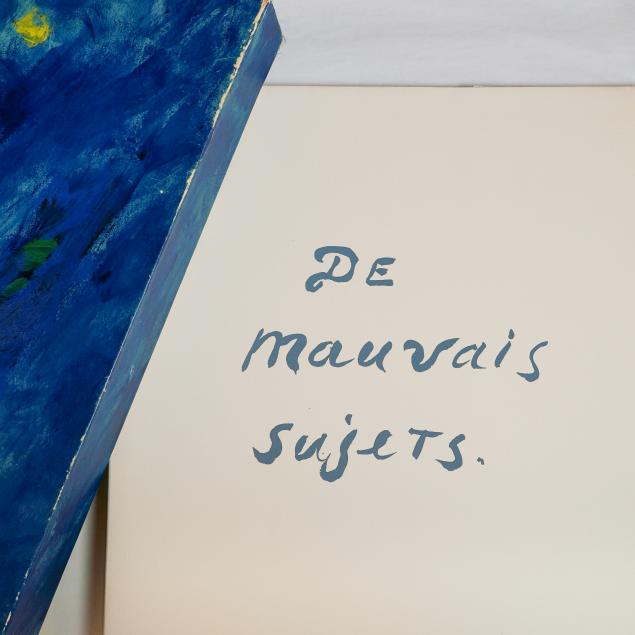 DE
mauvais
sujets.